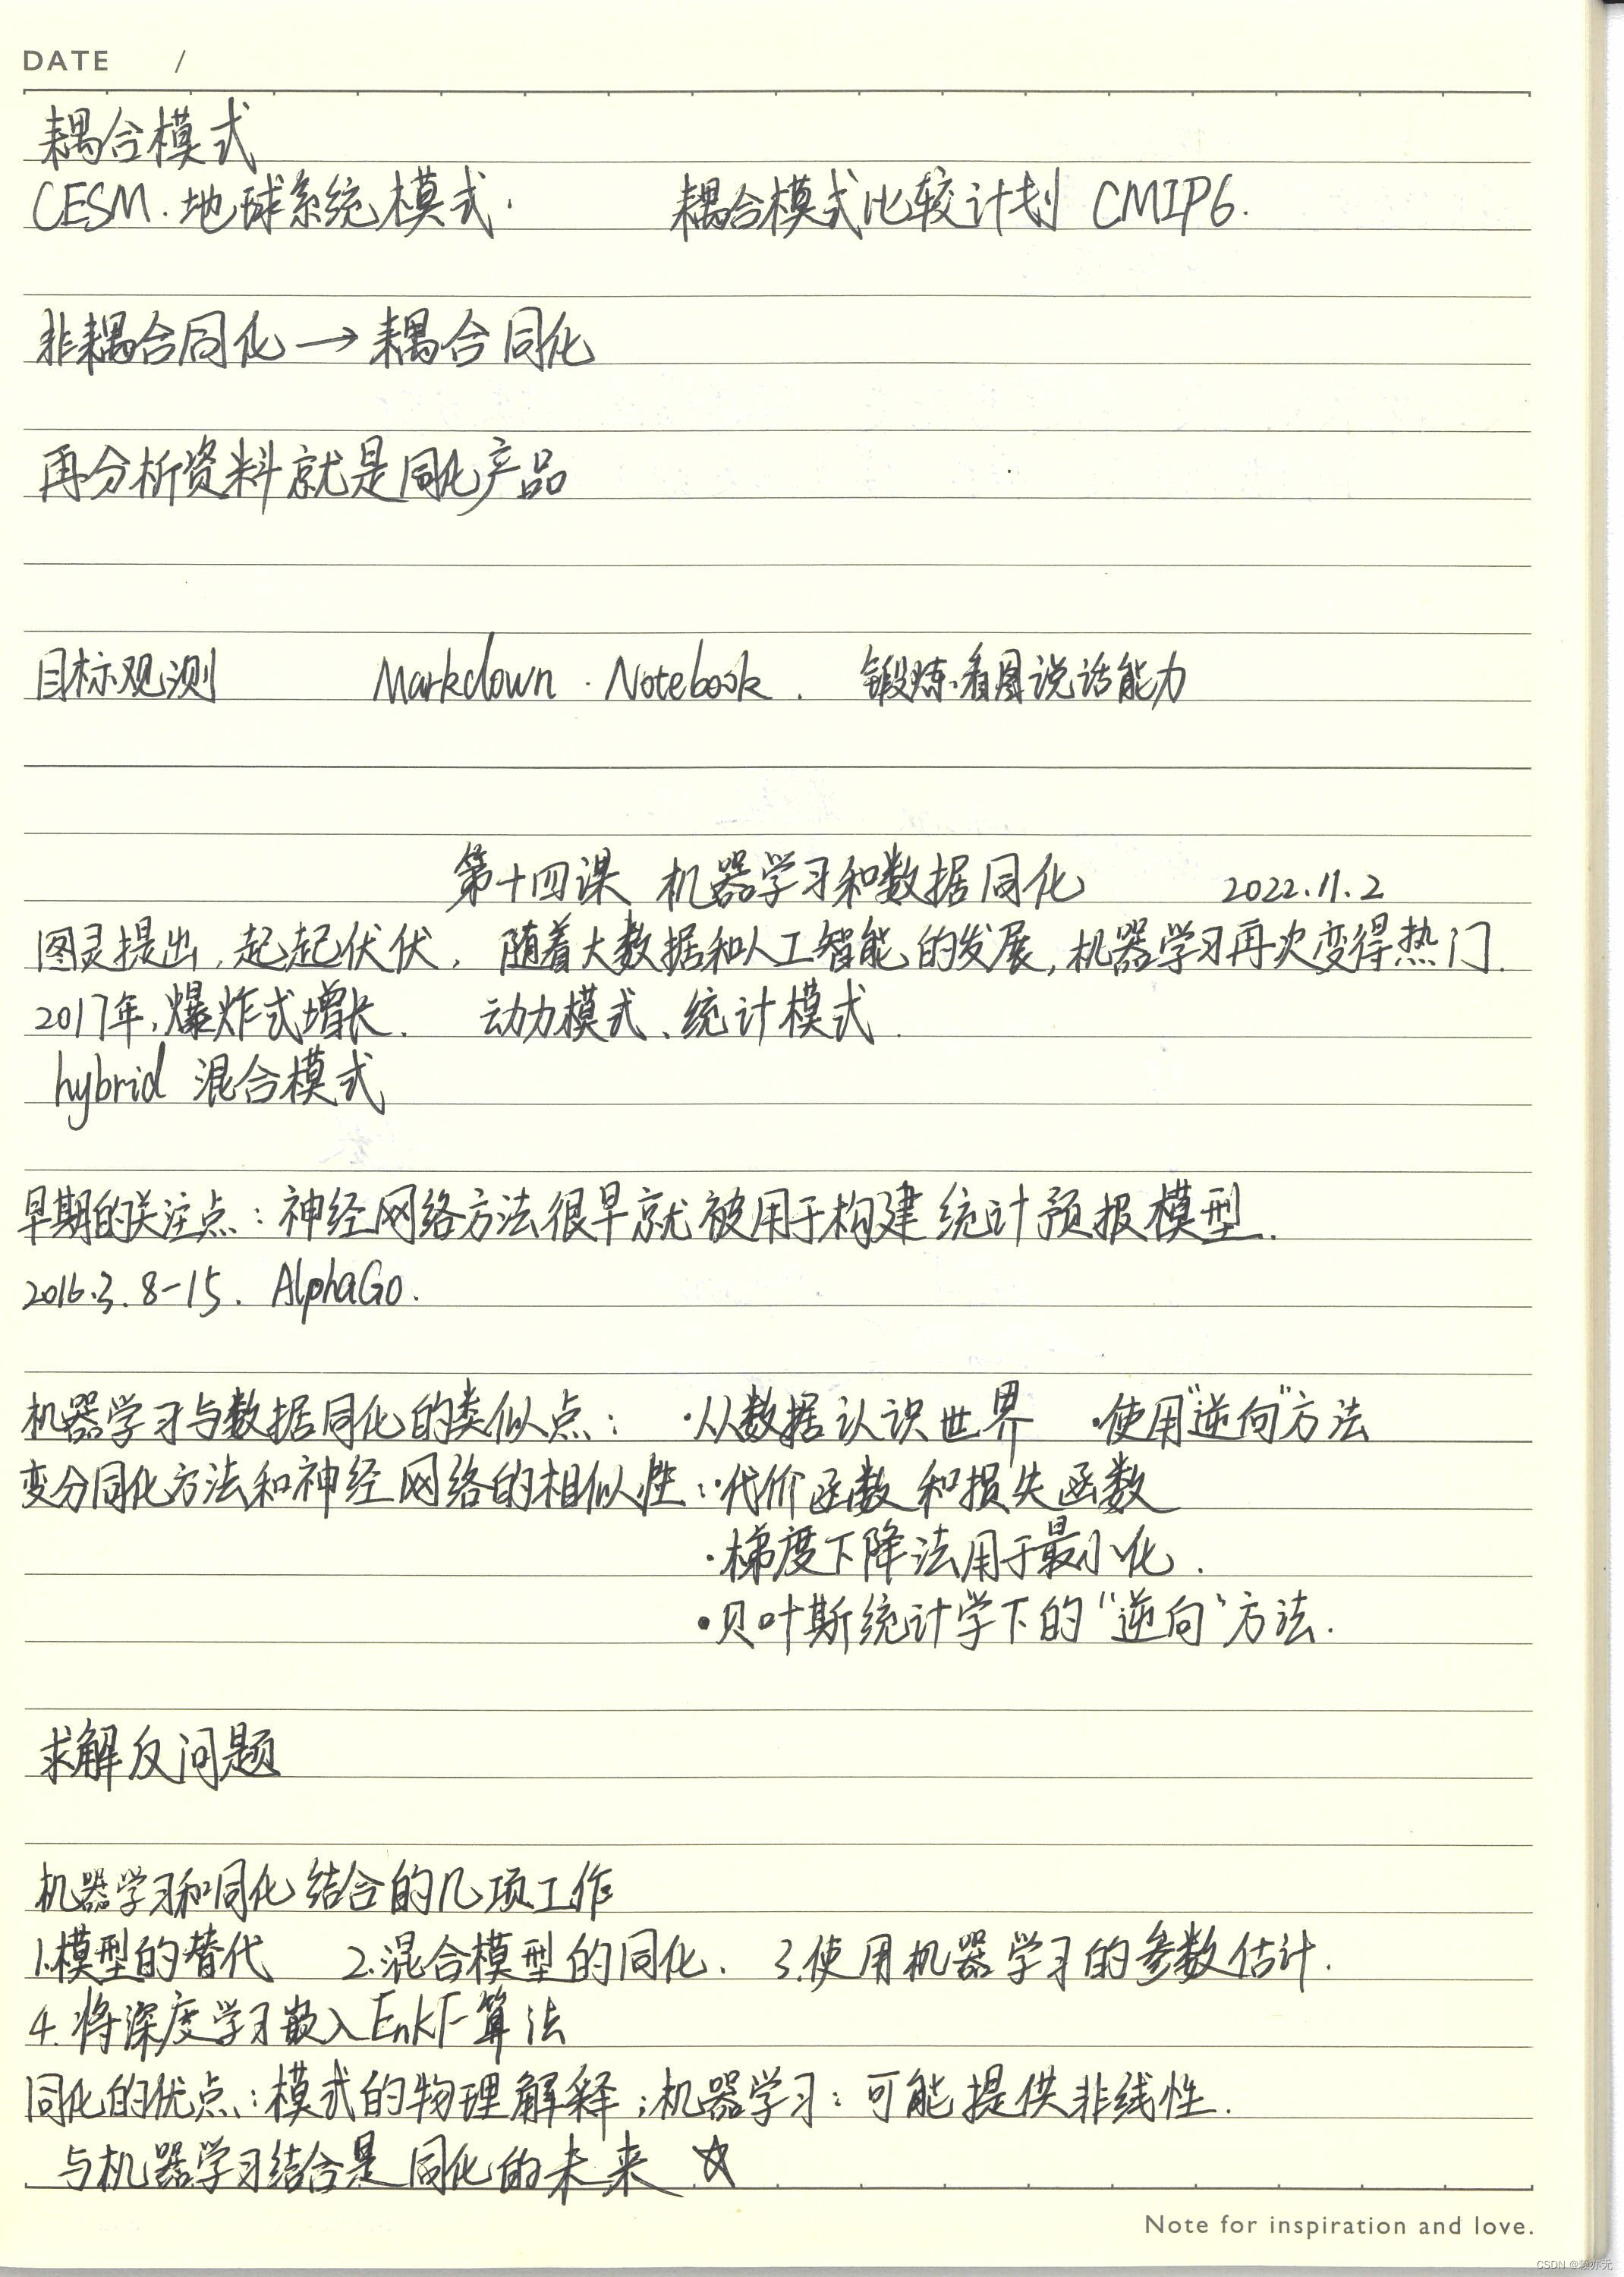 DATE /
耦合模式
CESM. 地球系统模式. 耦合模式比较计划 CMIP6.
非耦合同化→耦合同化
再分析资料就是同化产品
目标观测 Markdown. Notebook. 锻炼.看图说话能力
第十四课 机器学习和数据同化 2022.11.2
图灵提出,起起伏伏. 随着大数据和人工智能的发展,机器学习再次变得热门.
2017年,爆炸式增长. 动力模式、统计模式.
hybrid 混合模式
早期的关注点:神经网络方法很早就被用于构建统计预报模型.
2016.3.8-15. AlphaGo.
机器学习与数据同化的类似点: ·从数据认识世界 ·使用"逆向"方法
变分同化方法和神经网络的相似性:·代价函数和损失函数
·梯度下降法用于最小化.
·贝叶斯统计学下的"逆向"方法.
求解反问题
机器学习和同化结合的几项工作
1.模型的替代 2.混合模型的同化. 3.使用机器学习的参数估计.
4.将深度学习嵌入EnKF算法
同化的优点:模式的物理解释;机器学习:可能提供非线性.
与机器学习结合是同化的未来 ☆
Note for inspiration and love.
CSDN @赖亦无